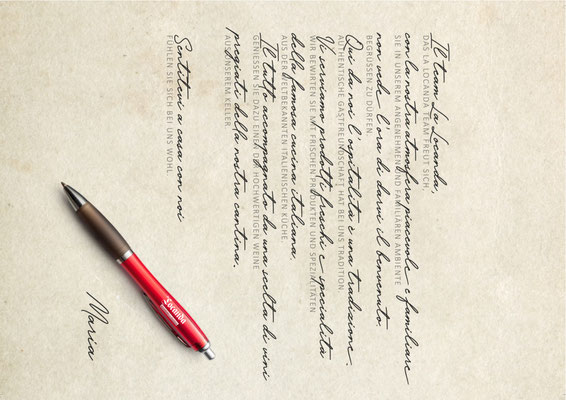 Il team La Locanda,
DAS LA LOCANDA TEAM FREUT SICH,
con la nostra atmosfera piacevole e familiare
SIE IN UNSEREM ANGENEHMEN UND FAMILIÄREN AMBIENTE
non vede l'ora di darvi il benvenuto.
BEGRÜSSEN ZU DÜRFEN.
Qui da noi l'ospitalità è una tradizione.
AUTHENTISCHE GASTFREUNDSCHAFT HAT BEI UNS TRADITION.
Vi serviamo prodotti freschi e specialità
WIR BEWIRTEN SIE MIT FRISCHEN PRODUKTEN UND SPEZIALITÄTEN
della famosa cucina italiana.
AUS DER WELTBEKANNTEN ITALIENISCHEN KÜCHE.
Il tutto accompagnato da una scelta di vini
GENIESSEN SIE DAZU EINEN DER HOCHWERTIGEN WEINE
pregiati della nostra cantina.
AUS UNSEREM KELLER.
Sentitevi a casa con noi
FÜHLEN SIE SICH BEI UNS WOHL
Maria
Locanda